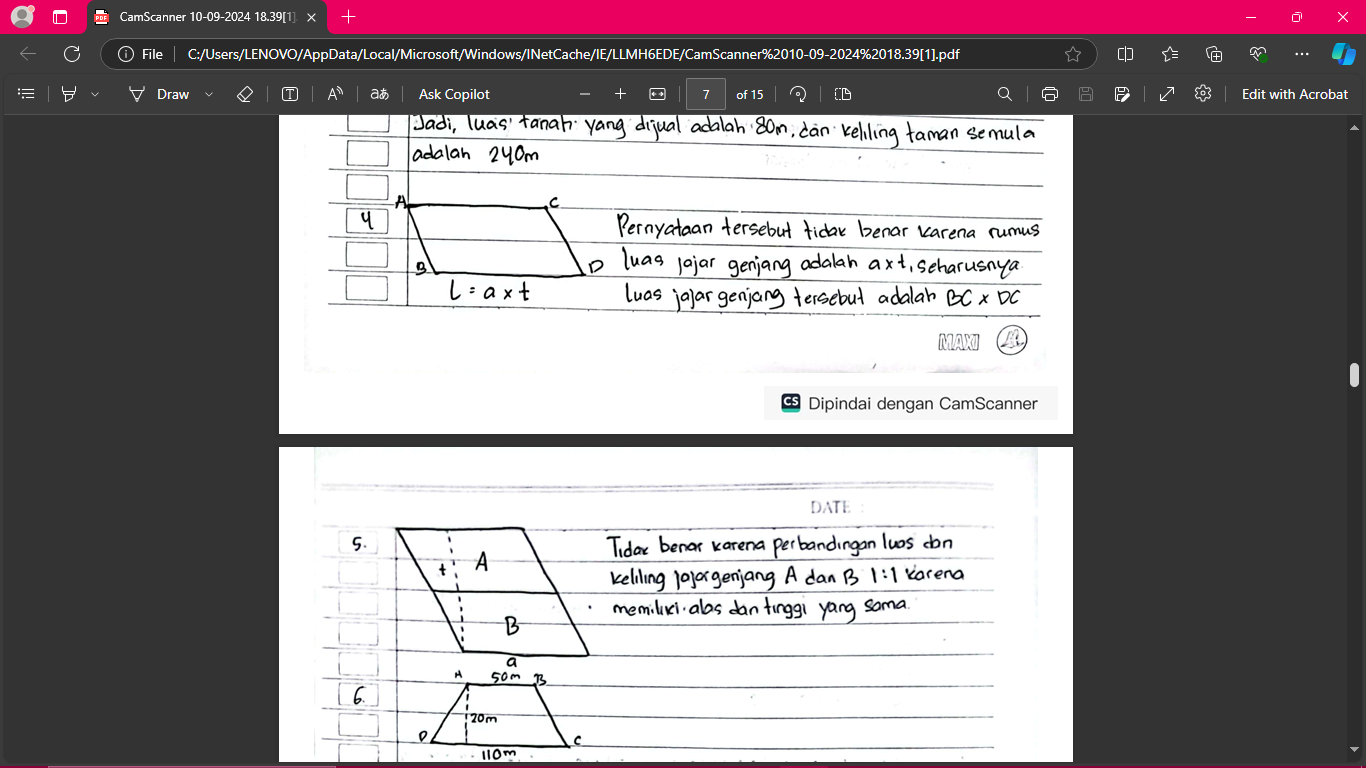 CamScanner 10-09-2024 18.39[1]
File
C:/Users/LENOVO/AppData/Local/Microsoft/Windows/INetCache/IE/LLMH6EDE/CamScanner%2010-09-2024%2018.39[1].pdf
Draw
Ask Copilot
7 of 15
Edit with Acrobat
Jadi, luas tanah yang dijual adalah 80m, dan keliling taman semula
adalah 240m
A C
4
Pernyataan tersebut tidak benar karena rumus
B D
luas jajar genjang adalah a x t, seharusnya
L = a x t
luas jajar genjang tersebut adalah BC x DC
MAXI
CS Dipindai dengan CamScanner
DATE :
5.
t A
B
a
Tidak benar karena perbandingan luas dan
keliling jajargenjang A dan B 1:1 karena
memiliki alas dan tinggi yang sama.
6.
A 50m B
20m
D C
110m